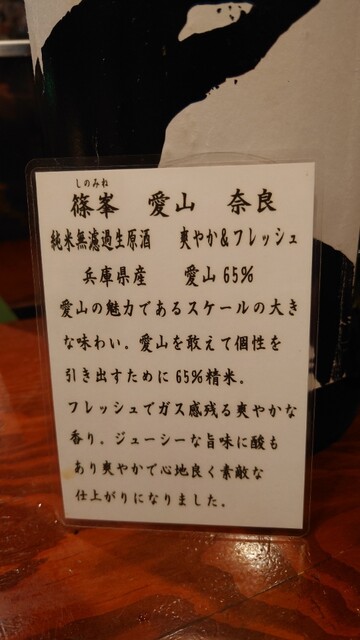 しのみね
篠峯 愛山 奈良
純米無濾過生原酒 爽やか&フレッシュ
兵庫県産 愛山65%
愛山の魅力であるスケールの大き
な味わい。愛山を敢えて個性を
引き出すために65%精米。
フレッシュでガス感残る爽やかな
香り。ジューシーな旨味に酸も
あり爽やかで心地良く素敵な
仕上がりになりました。